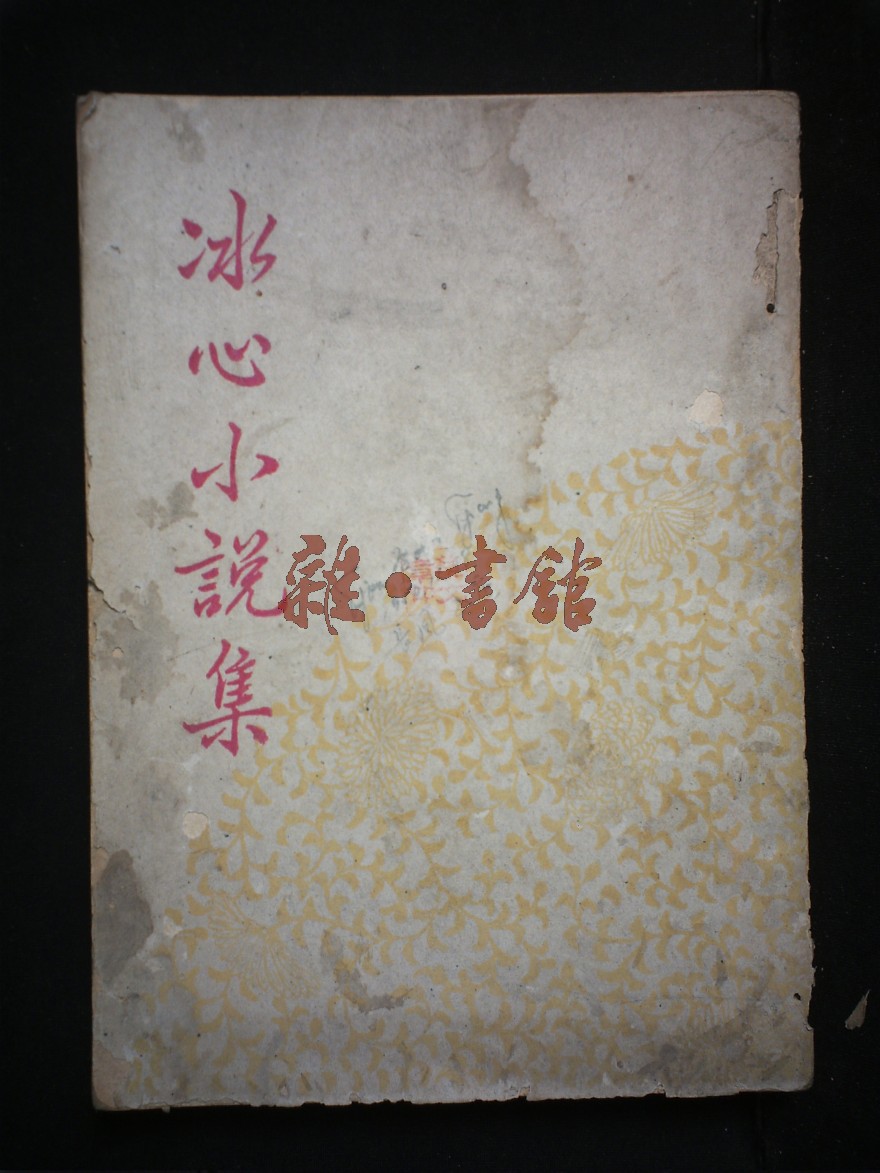 冰心小説集
雜·書館